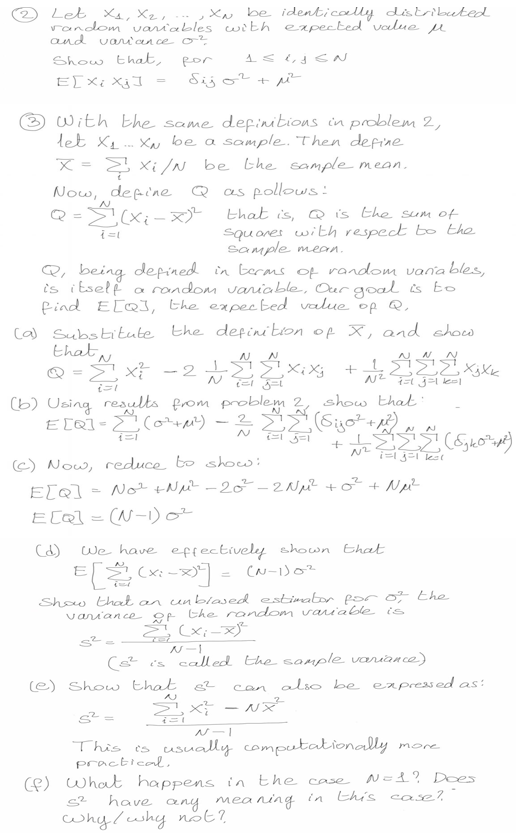 ② Let X₁, X₂, ... , X_N be identically distributed
random variables with expected value μ
and variance σ².
Show that, for 1 ≤ i, j ≤ N
E[XᵢXⱼ] = δᵢⱼσ² + μ²
③ With the same definitions in problem 2,
let X₁ ... X_N be a sample. Then define
X̄ = Σᵢ Xᵢ/N be the sample mean.
Now, define Q as follows:
Q = Σᵢ₌₁ᴺ (Xᵢ - X̄)² that is, Q is the sum of
squares with respect to the
sample mean.
Q, being defined in terms of random variables,
is itself a random variable. Our goal is to
find E[Q], the expected value of Q.
(a) Substitute the definition of X̄, and show
that
Q = Σᵢ₌₁ᴺ Xᵢ² - 2 1/N Σᵢ₌₁ᴺ Σⱼ₌₁ᴺ XᵢXⱼ + 1/N² Σᵢ₌₁ᴺ Σⱼ₌₁ᴺ Σₖ₌₁ᴺ XⱼXₖ
(b) Using results from problem 2, show that:
E[Q] = Σᵢ₌₁ᴺ (σ²+μ²) - 2/N Σᵢ₌₁ᴺ Σⱼ₌₁ᴺ (δᵢⱼσ²+μ²)
+ 1/N² Σᵢ₌₁ᴺ Σⱼ₌₁ᴺ Σₖ₌₁ᴺ (δⱼₖσ²+μ²
(c) Now, reduce to show:
E[Q] = Nσ² + Nμ² - 2σ² - 2Nμ² + σ² + Nμ²
E[Q] = (N-1)σ²
(d) We have effectively shown that
E[Σᵢ₌₁ᴺ (Xᵢ - X̄)²] = (N-1)σ²
Show that an unbiased estimator for σ², the
variance of the random variable is
s² = Σᵢ₌₁ᴺ (Xᵢ - X̄)² / N-1
(s² is called the sample variance)
(e) Show that s² can also be expressed as:
s² = Σᵢ₌₁ᴺ Xᵢ² - NX̄² / N-1
This is usually computationally more
practical.
(f) What happens in the case N=1? Does
s² have any meaning in this case?
Why/why not?